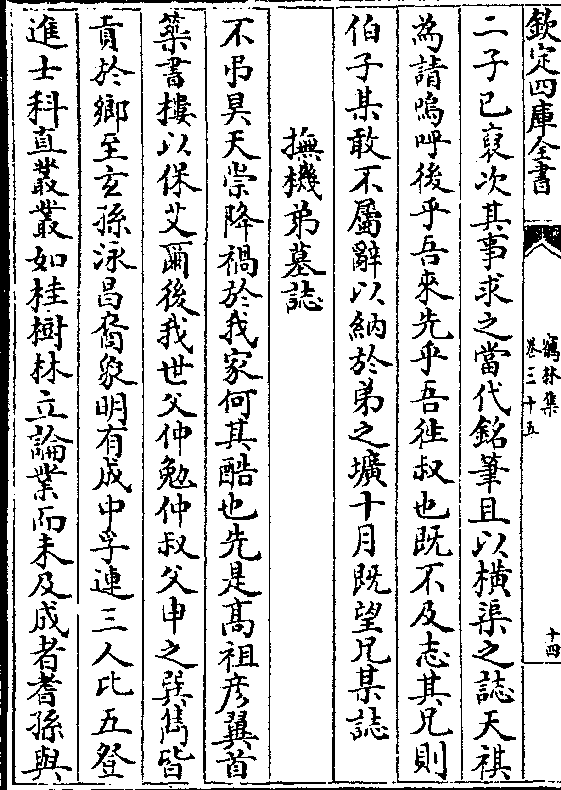 欽定四庫全書
鶴林集
卷三十五
十四
二子已裒次其事求之當代銘筆且以橫渠之誌天祺
為請嗚呼後乎吾來先乎吾徃叔也既不及志其兄則
伯子某敢不屬辭以納於弟之壙十月既望兄某誌
撫機弟墓誌
不弔昊天崇降禍於我家何其酷也先是髙祖彦翼首
築書摟以保艾爾後我世父仲勉仲叔父申之巽雋皆
貢於鄉至玄孫泳昌裔象明有成中孚連三人比五登
進士科直叢叢如桂樹林立論業而未及成者耆孫與